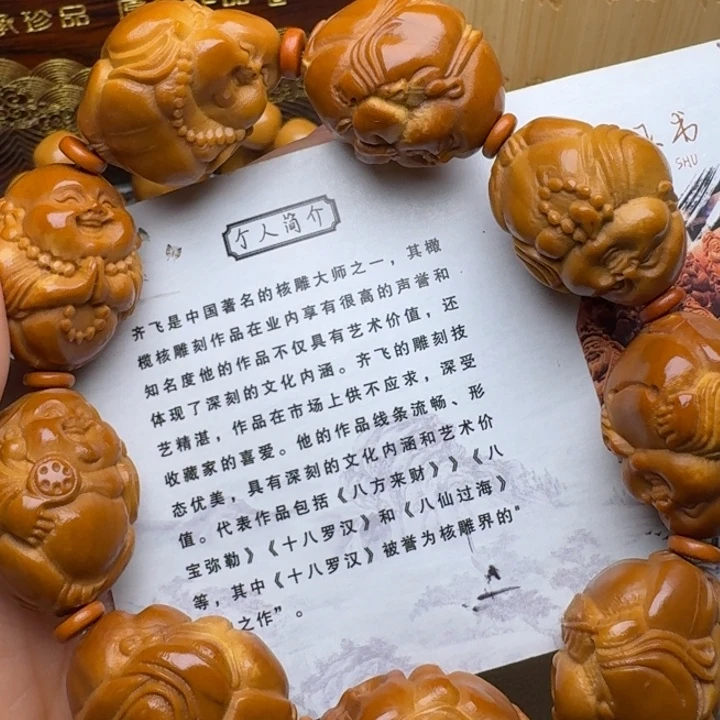 承珍品
个人简介
书
SHU
齐飞是中国著名的核雕大师之一，其橄
榄核雕刻作品在业内享有很高的声誉和
知名度他的作品不仅具有艺术价值，还
体现了深刻的文化内涵。齐飞的雕刻技
艺精湛，作品在市场上供不应求，深受
收藏家的喜爱。他的作品线条流畅、形
态优美，具有深刻的文化内涵和艺术价
值。代表作品包括《八方来财》》《八
宝弥勒》《十八罗汉》和《八仙过海》
等，其中《十八罗汉》被誉为核雕界的"
之作"。